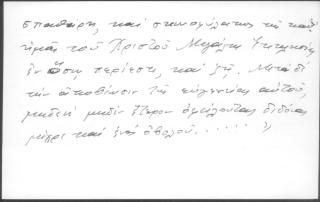 σπαθάρης, καὶ σκευοφύλακος τῆς καθ'
ἡμᾶς τοῦ Χριστοῦ Μεγάλης Ἐκκλησίας
ἐν ὅσῃ περίεστι, καὶ ζῇ. Μετὰ δὲ
τὴν ἀποβίωσιν τῆς εὐγενείας αὐτοῦ,
μηδενὶ μηδὲν ἕτερον ὀφείλοντας διδόναι
μέχρι καὶ ἑνὸς ὀβολοῦ.....»